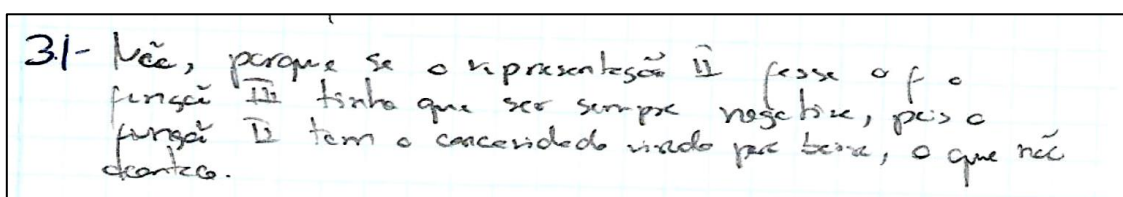 3.1- Não, porque se a representação II fosse a f a
função III tinha que ser sempre negativa, pois a
função II tem a concavidade virada para baixo, o que não
acontece.